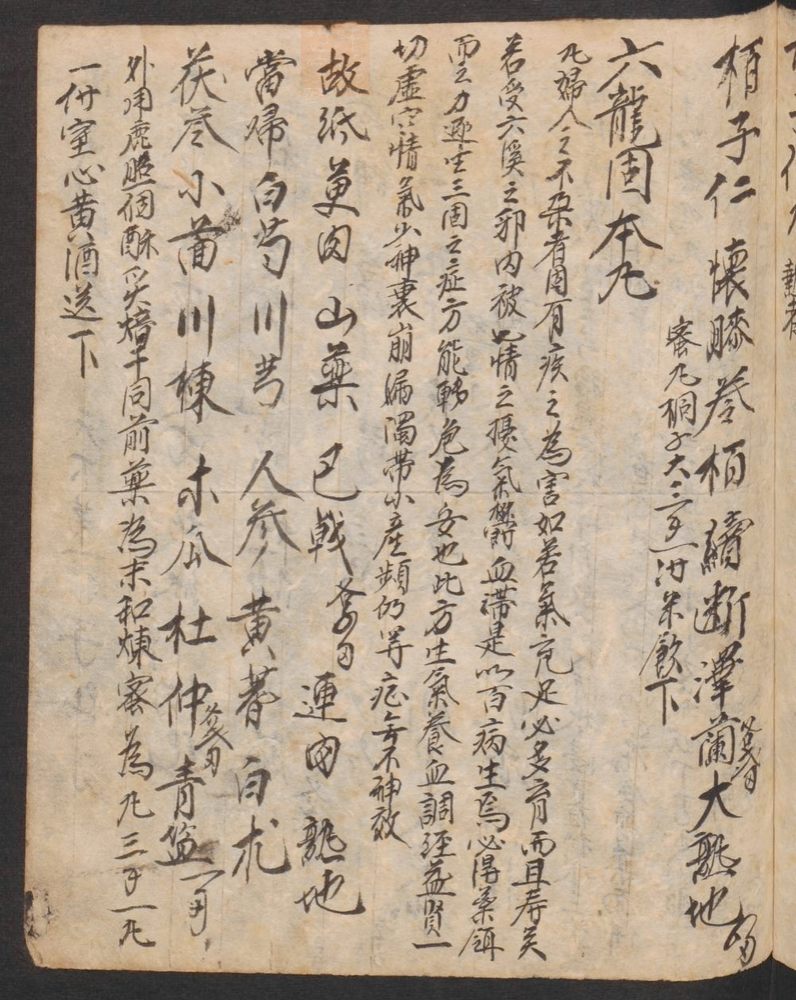 柏子仁 懷膝 卷柏 續斷 澤蘭 大熟地
蜜丸桐子大三十一付米飲下
六龍固本丸
凡婦人之不孕者因有疾之為害如若氣充足必多育而且壽矣
若受六滛之邪內被七情之擾氣欝血滯是以百病生焉必得藥餌
而之力逐生三因之症方能轉危為安也此方生氣養血調經益賢一
切虛空情氣少神衰崩漏濁帶小產頻仍等症無不神效
故紙 萸肉 山藥 巴戟 連肉 熟地
當婦 白芍 川芎 人參 黃蓍 白朮
茯苓 小茴 川楝 木瓜 杜仲 青盐一
外用鹿胎一個酥炙焙干同前藥為末和煉蜜為丸三一丸
一付空心黄酒送下